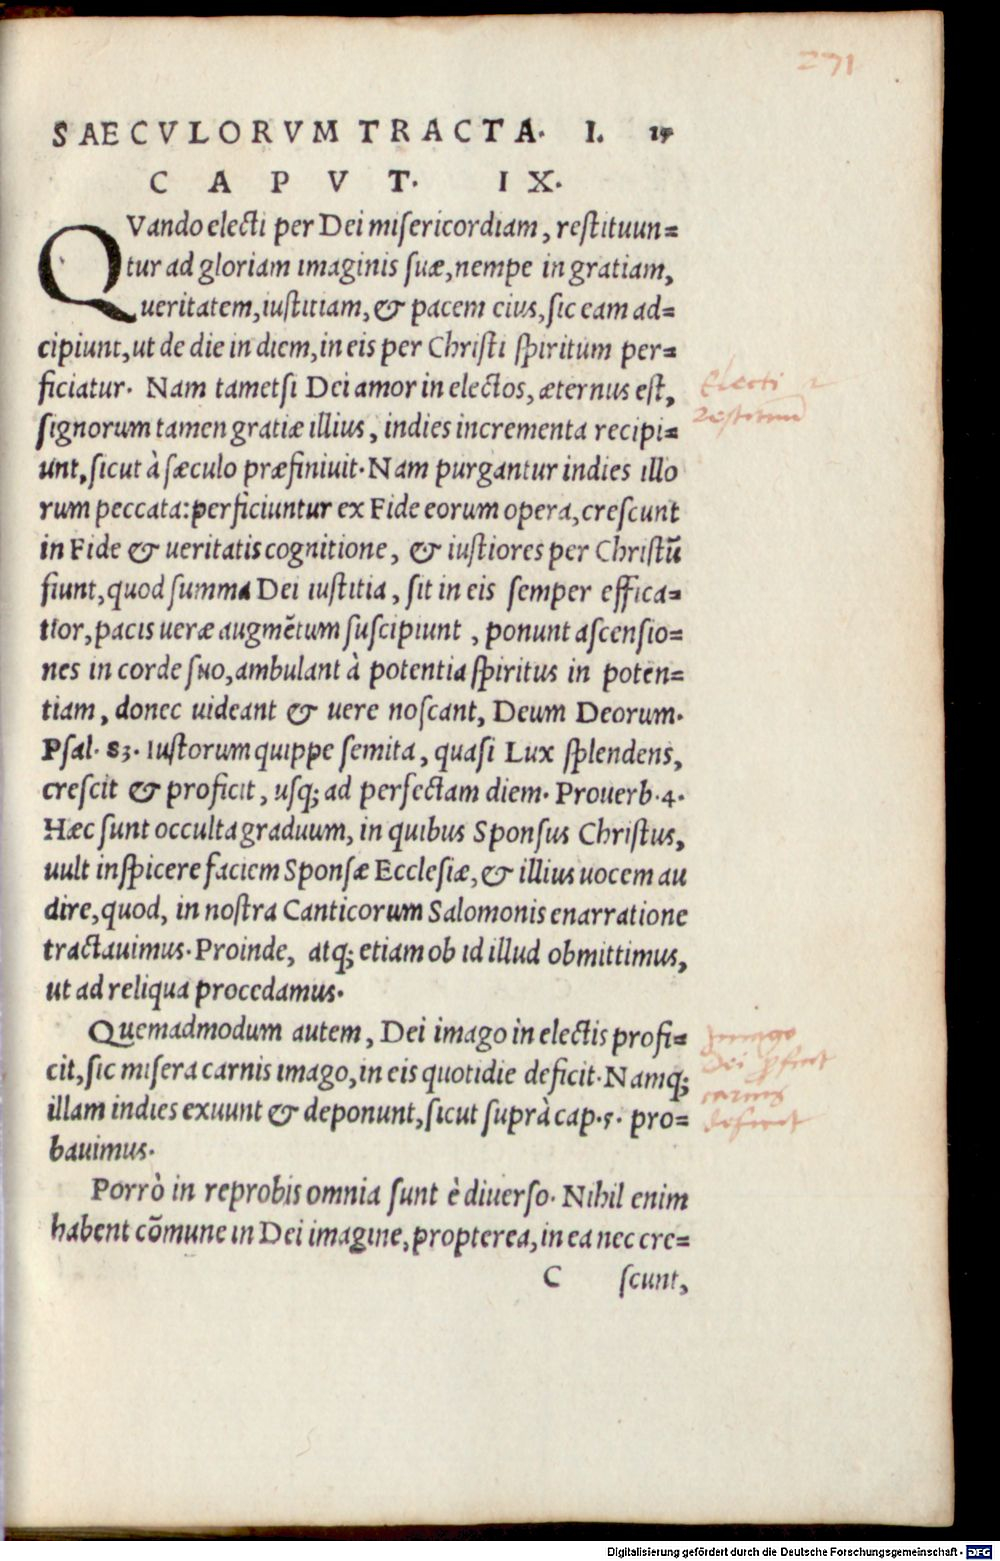 271
SAECVLORVM TRACTA. I.
CAPVT. IX.
QVando electi per Dei misericordiam, restituun=
tur ad gloriam imaginis suæ, nempe in gratiam,
ueritatem, iustitiam, & pacem eius, sic eam ad=
cipiunt, ut de die in diem, in eis per Christi spiritum per=
ficiatur. Nam tametsi Dei amor in electos, æternus est,
signorum tamen gratiæ illius, indies incrementa recipi=
unt, sicut à sæculo præfiniuit. Nam purgantur indies illo
rum peccata: perficiuntur ex Fide eorum opera, crescunt
in Fide & ueritatis cognitione, & iustiores per Christū
fiunt, quod summa Dei iustitia, sit in eis semper effica=
tior, pacis ueræ augmētum suscipiunt, ponunt ascensio=
nes in corde suo, ambulant à potentia spiritus in poten=
tiam, donec uideant & uere noscant, Deum Deorum.
Psal. 83. Iustorum quippe semita, quasi Lux splendens,
crescit & proficit, usq; ad perfectam diem. Prouerb. 4.
Hæc sunt occulta graduum, in quibus Sponsus Christus,
uult inspicere faciem Sponsæ Ecclesiæ, & illius uocem au
dire, quod, in nostra Canticorum Salomonis enarratione
tractauimus. Proinde, atq; etiam ob id illud obmittimus,
ut ad reliqua procedamus.
Quemadmodum autem, Dei imago in electis profi=
cit, sic misera carnis imago, in eis quotidie deficit. Namq;
illam indies exuunt & deponunt, sicut suprà cap. 5. pro=
bauimus.
Porrò in reprobis omnia sunt è diuerso. Nihil enim
habent cōmune in Dei imagine, propterea, in ea nec cre=
C scunt,
Electi
Imago
Dei
carnis
deficit
Digitalisierung gefördert durch die Deutsche Forschungsgemeinschaft - DFG